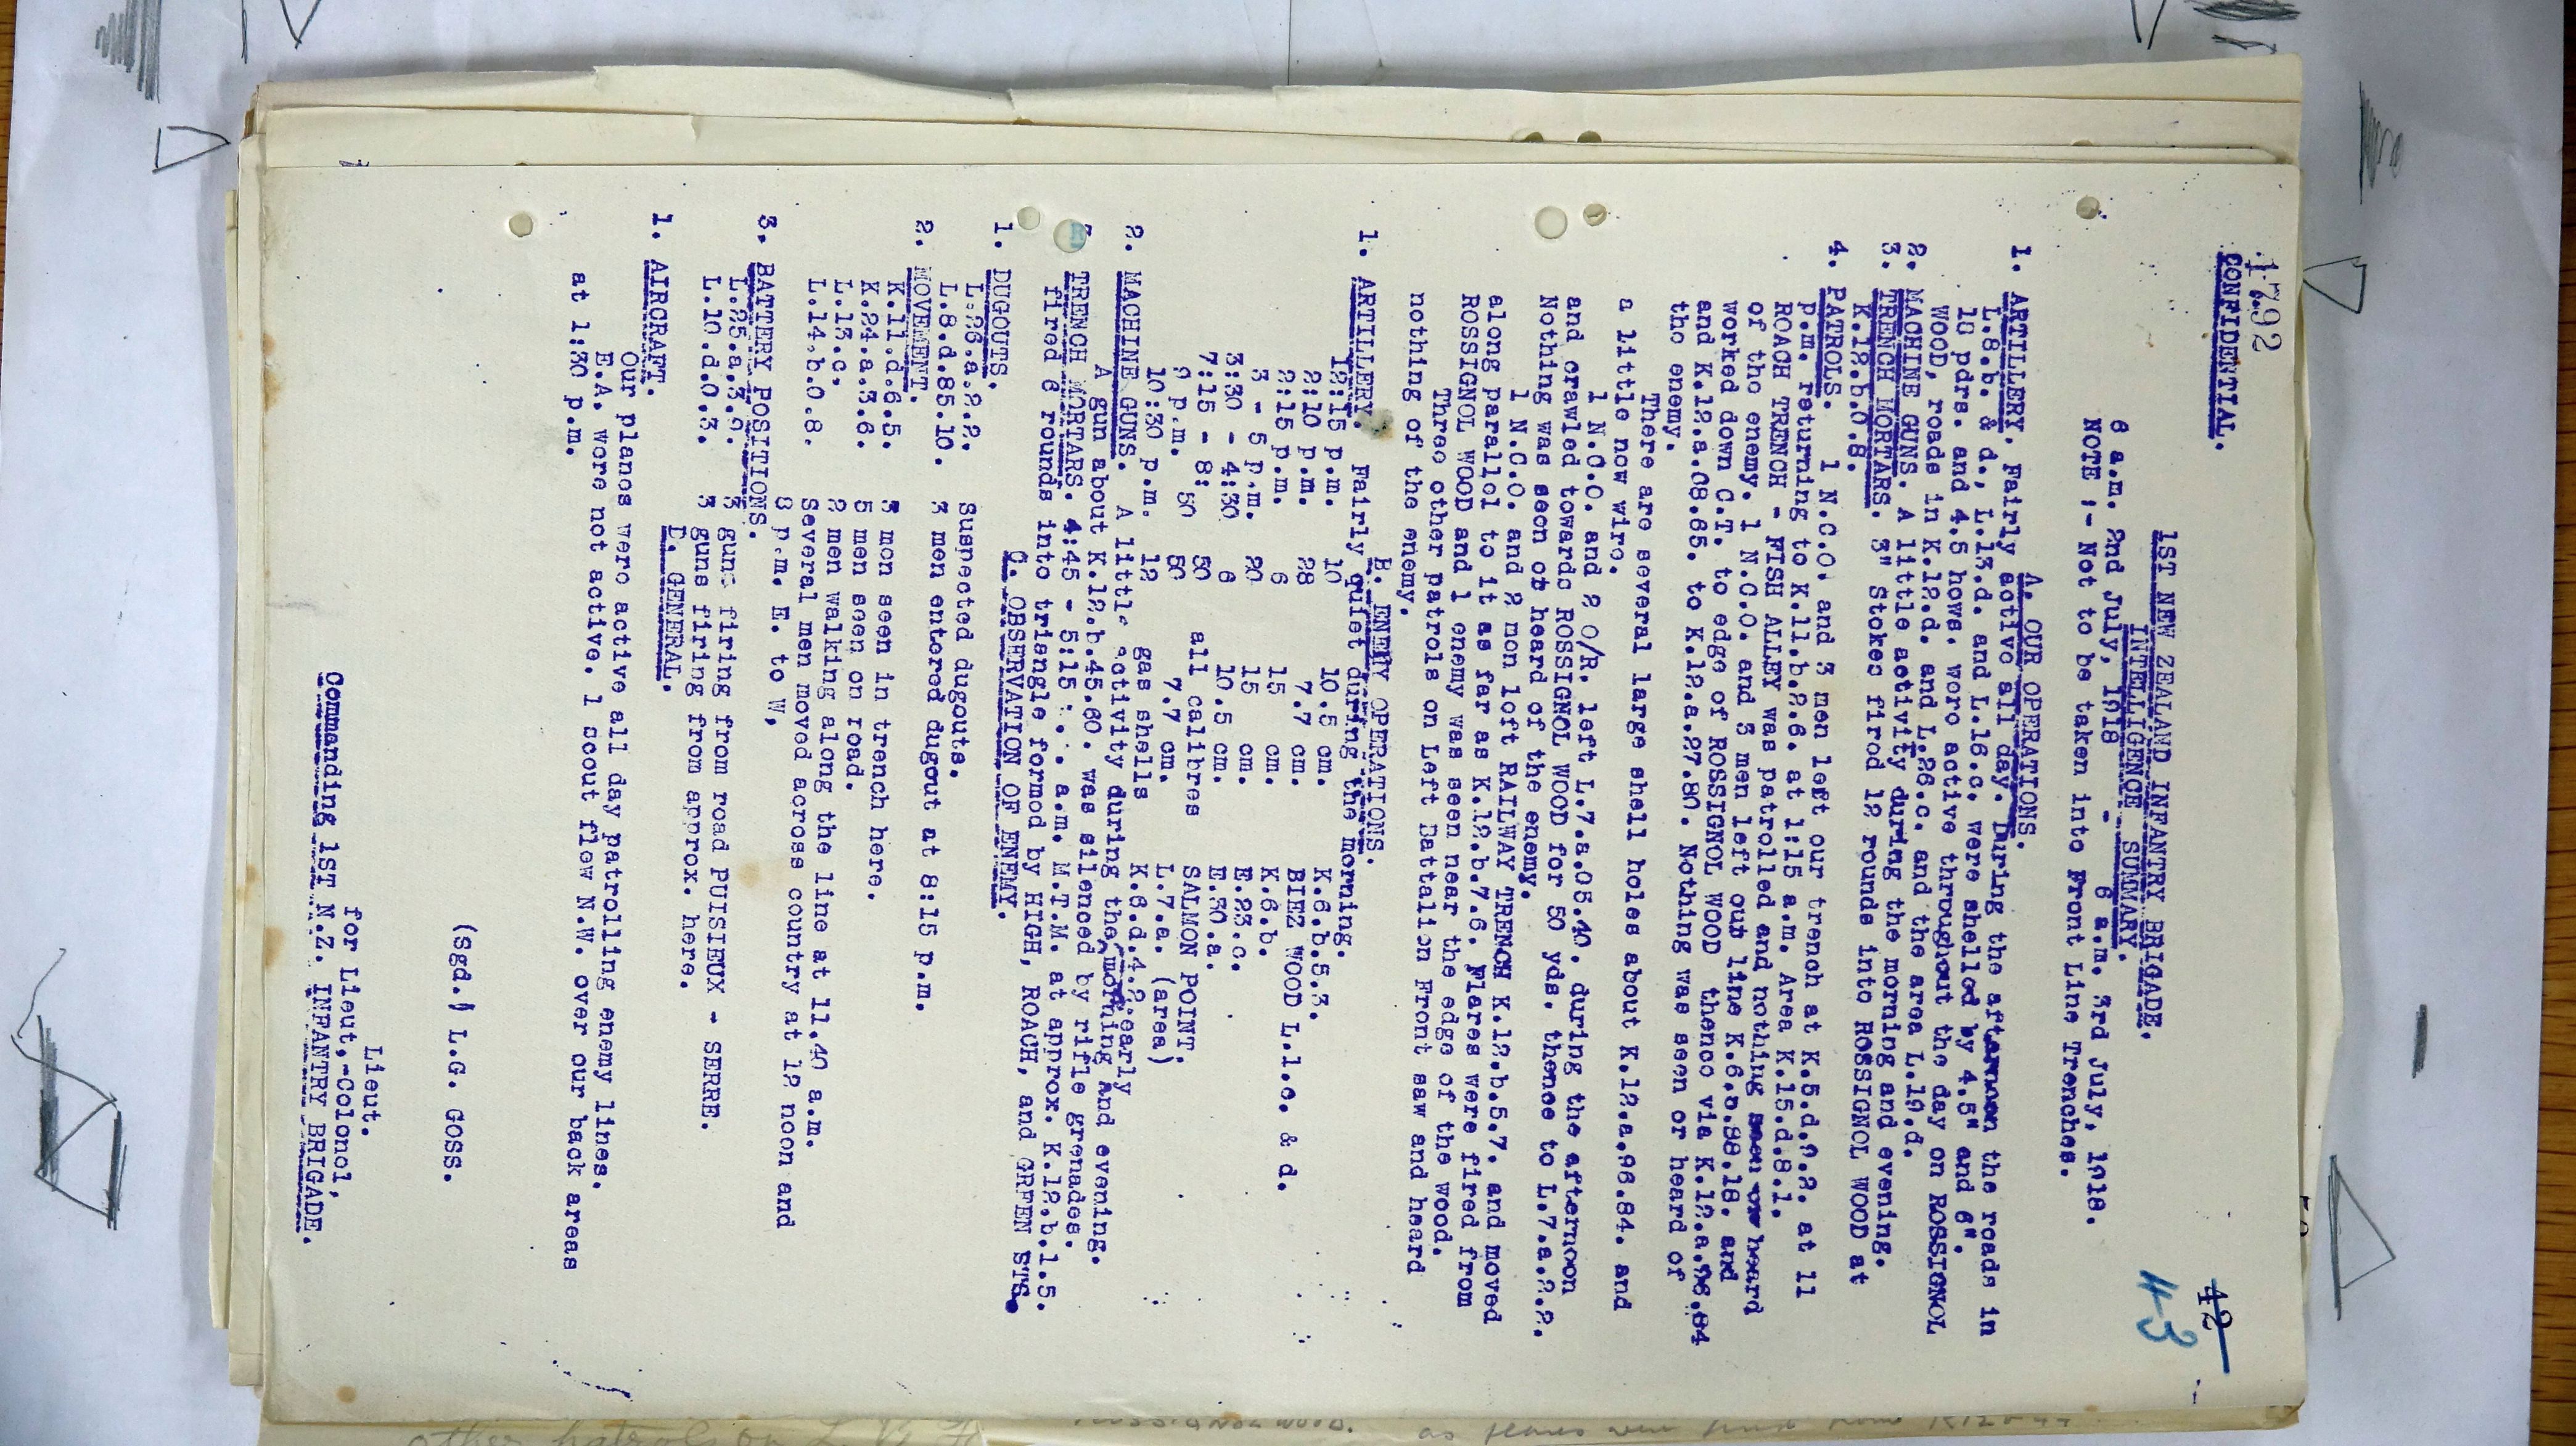 1792
42
43
CONFIDENTIAL.
1ST NEW ZEALAND INFANTRY BRIGADE.
INTELLIGENCE SUMMARY.
6 a.m. 2nd July, 1918 - 6 a.m. 3rd July, 1918.
NOTE :- Not to be taken into Front Line Trenches.
A. OUR OPERATIONS.
1. ARTILLERY. Fairly active all day. During the afternoon the roads in
L.8.b. & d., L.13.d. and L.16.c. were shelled by 4.5" and 6".
18 pdrs. and 4.5 hows. were active throughout the day on ROSSIGNOL
WOOD, roads in K.12.d. and L.26.c. and the area L.19.d.
2. MACHINE GUNS. A little activity during the morning and evening.
3. TRENCH MORTARS. 3" Stokes fired 12 rounds into ROSSIGNOL WOOD at
K.12.b.0.8.
4. PATROLS. 1 N.C.O. and 3 men left our trench at K.5.d.9.2. at 11
p.m. returning to K.11.b.2.6. at 1:15 a.m. Area K.15.d.8.1.
ROACH TRENCH - FISH ALLEY was patrolled and nothing seen or heard
of the enemy. 1 N.C.O. and 3 men left our line K.6.b.98.18. and
worked down C.T. to edge of ROSSIGNOL WOOD thence via K.12.a.96.84
and K.12.a.08.65. to K.12.a.27.80. Nothing was seen or heard of
the enemy.
There are several large shell holes about K.12.a.96.84. and
a little new wire.
1 N.C.O. and 2 O/R. left L.7.a.05.40. during the afternoon
and crawled towards ROSSIGNOL WOOD for 50 yds. thence to L.7.a.2.2.
Nothing was seen or heard of the enemy.
1 N.C.O. and 2 men left RAILWAY TRENCH K.12.b.5.7. and moved
along parallel to it as far as K.12.b.7.6. Flares were fired from
ROSSIGNOL WOOD and 1 enemy was seen near the edge of the wood.
Three other patrols on Left Battalion Front saw and heard
nothing of the enemy.
B. ENEMY OPERATIONS.
1. ARTILLERY. Fairly quiet during the morning.
12:15 p.m. 10 10.5 cm. K.6.b.5.3.
2:10 p.m. 28 7.7 cm. BIEZ WOOD L.1.c. & d.
2:15 p.m. 6 15 cm. K.6.b.
3 - 5 p.m. 20 15 cm. E.23.c.
3:30 - 4:30 6 10.5 cm. E.30.a.
7:15 - 8: 50 all calibres SALMON POINT.
9 p.m. 50 50 7.7 cm. L.7.a. (area)
10:30 p.m. 12 gas shells K.6.d.4.2.
2. MACHINE GUNS. A little activity during the early morning and evening.
A gun about K.12.b.45.60. was silenced by rifle grenades.
3. TRENCH MORTARS. 4:45 - 5:15 a.m. M.T.M. at approx. K.12.b.1.5.
fired 6 rounds into triangle formed by HIGH, ROACH, and GREEN STS.
C. OBSERVATION OF ENEMY.
1. DUGOUTS.
L.26.a.2.2. Suspected dugouts.
L.8.d.85.10. 3 men entered dugout at 8:15 p.m.
2. MOVEMENT.
K.11.d.6.5. 3 men seen in trench here.
K.24.a.3.6. 5 men seen on road.
L.13.c. 2 men walking along the line at 11.40 a.m.
L.14.b.0.8. Several men moved across country at 12 noon and
8 p.m. E. to W,
3. BATTERY POSITIONS.
L.25.a.3.9. 3 guns firing from road PUISIEUX - SERRE.
L.10.d.0.3. 3 guns firing from approx. here.
E. GENERAL.
1. AIRCRAFT.
Our planes were active all day patrolling enemy lines.
E.A. were not active. 1 scout flew N.W. over our back areas
at 1:30 p.m.
(sgd.) L.G. GOSS.
Lieut.
for Lieut.-Colonel,
Commanding 1ST N.Z. INFANTRY BRIGADE.
other patrols on
ROSSIGNOL WOOD. as flares were fired from